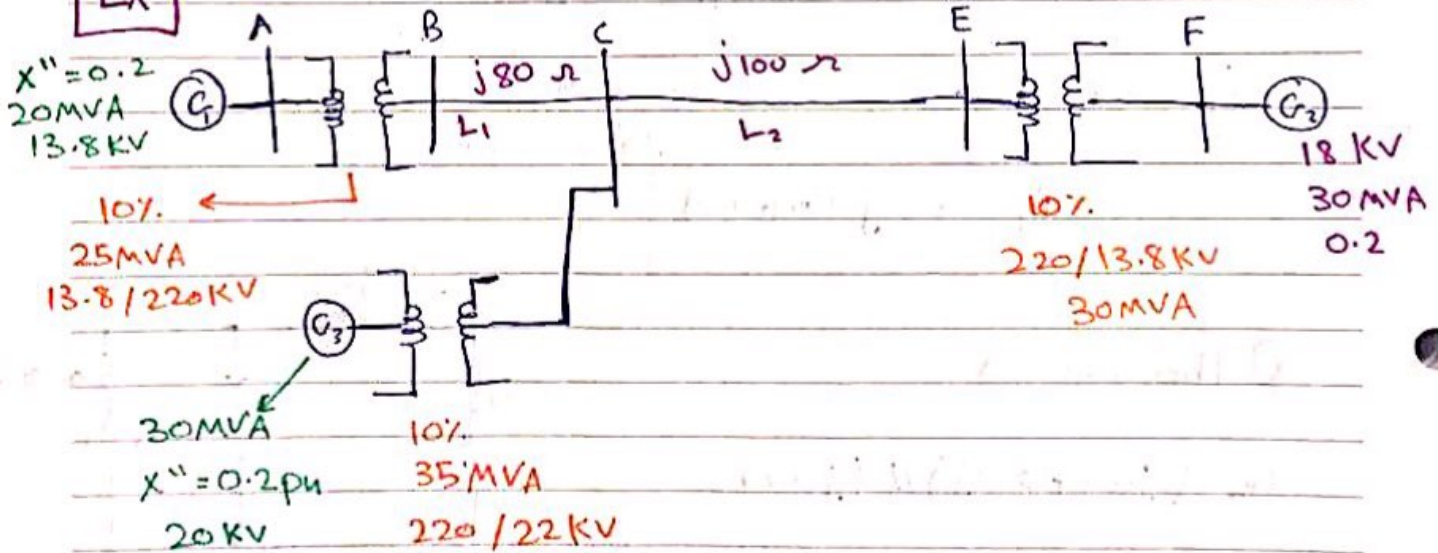 Ex
A B C E F
x'' = 0.2
20MVA
13.8KV
G1
j80 Ω
L1
j100 Ω
L2
G2
18 KV
30 MVA
0.2
10%.
25MVA
13.8/220KV
10%.
220/13.8KV
30MVA
G3
30MVA
x'' = 0.2pu
20KV
10%.
35MVA
220/22KV